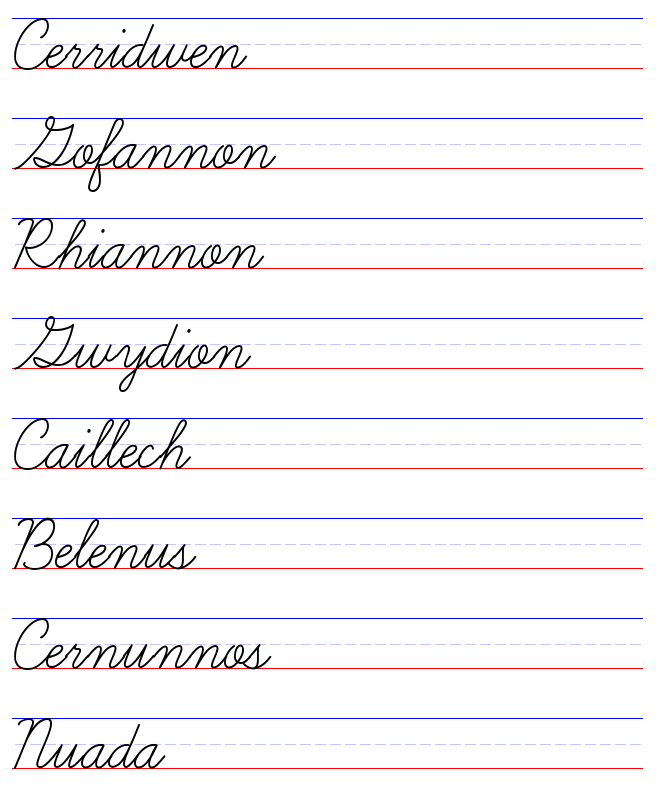 Cerridwen
Gofannon
Rhiannon
Gwydion
Caillech
Belenus
Cernunnos
Nuada